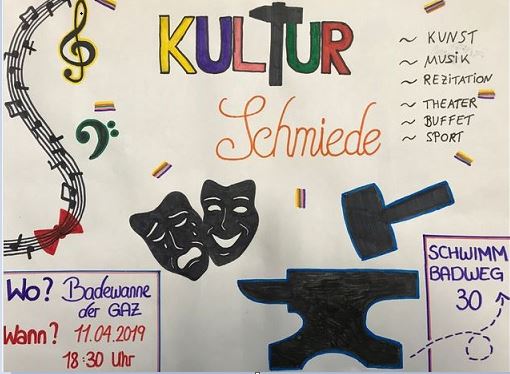 KULTUR
Schmiede
~ KUNST
~ MUSIK
~ REZITATION
~ THEATER
~ BUFFET
~ SPORT
Wo? Badewanne
der GAZ
Wann? 11.04.2019
18:30 Uhr
SCHWIMM
BADWEG
30